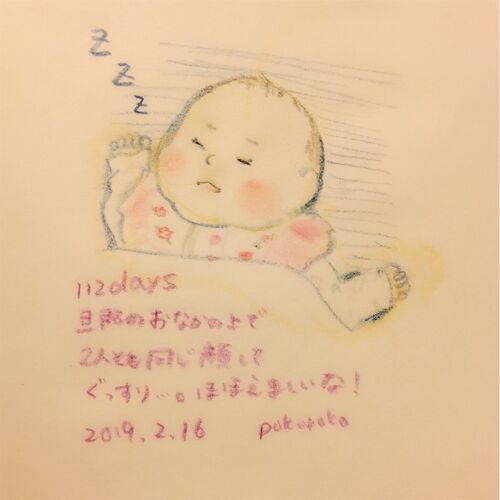 Z
Z
Z
112days
旦那のおなかの上で
2人とも同じ顔して
ぐっすり…。ほほえましいな!
2019.2.16 pokopoko